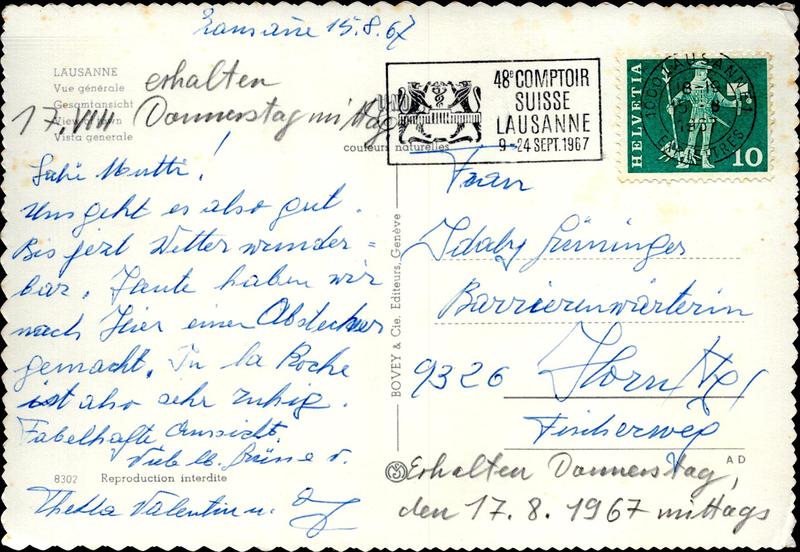 Lausanne 15.8.67
LAUSANNE
Vue générale
Gesamtansicht
View of town
Vista generale
couleurs naturelles
erhalten
17. VIII Donnerstag mittag
48e COMPTOIR
SUISSE
LAUSANNE
9-24 SEPT. 1967
HELVETIA
10
1000 LAUSANNE 1
Liebe Mutti!
Uns geht es also gut.
Bis jezt Wetter wunder=
bar. Heute haben wir
nach hier einen Abstecher
gemacht. In la Roche
ist also sehr ruhig.
Fabelhafte Aussicht.
Viele lb. Grüsse v.
Thekla Valentin u.
Frau
Idaly Grüninger
Barrierenwärterin
9326 Horn
Fischerweg
BOVEY & Cie. Editeurs, Genève
8302 Reproduction interdite
A D
Erhalten Donnerstag,
den 17. 8. 1967 mittags